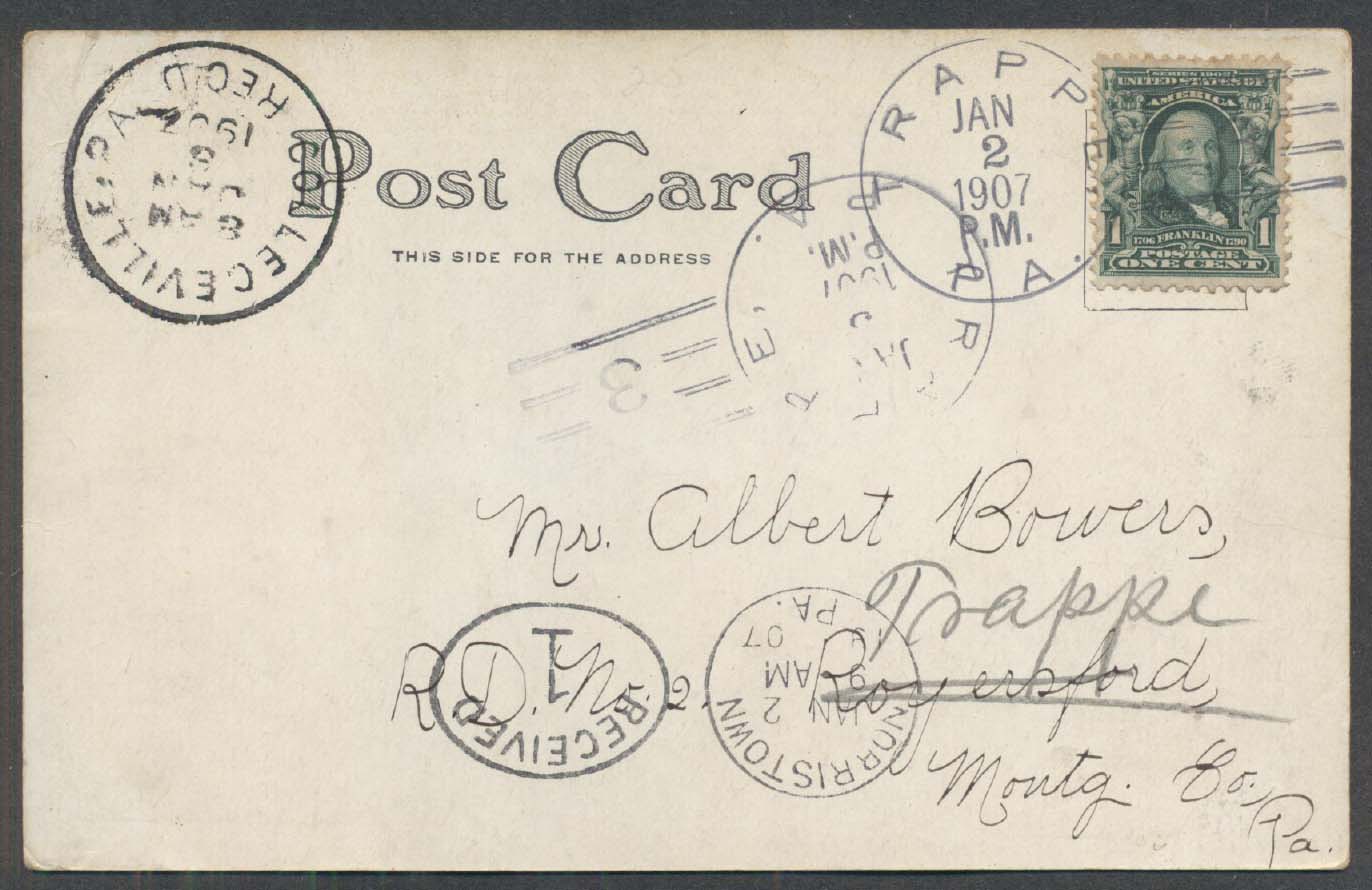 COLLEGEVILLE, PA.
REC'D
1907
8 AM
Post Card
THIS SIDE FOR THE ADDRESS
TRAPPE,
PA.
JAN
2
1907
P.M.
SERIES 1902
UNITED STATES OF
AMERICA
1706 FRANKLIN 1790
1 1
POSTAGE
ONE CENT
1907
P.M.
3
Mr. Albert Bowers,
Trappe
R.D. No. 2. Royersford,
Montg. Co.
Pa.
RECEIVED
1
NORRISTOWN
PA.
JAN 2
9 AM
07